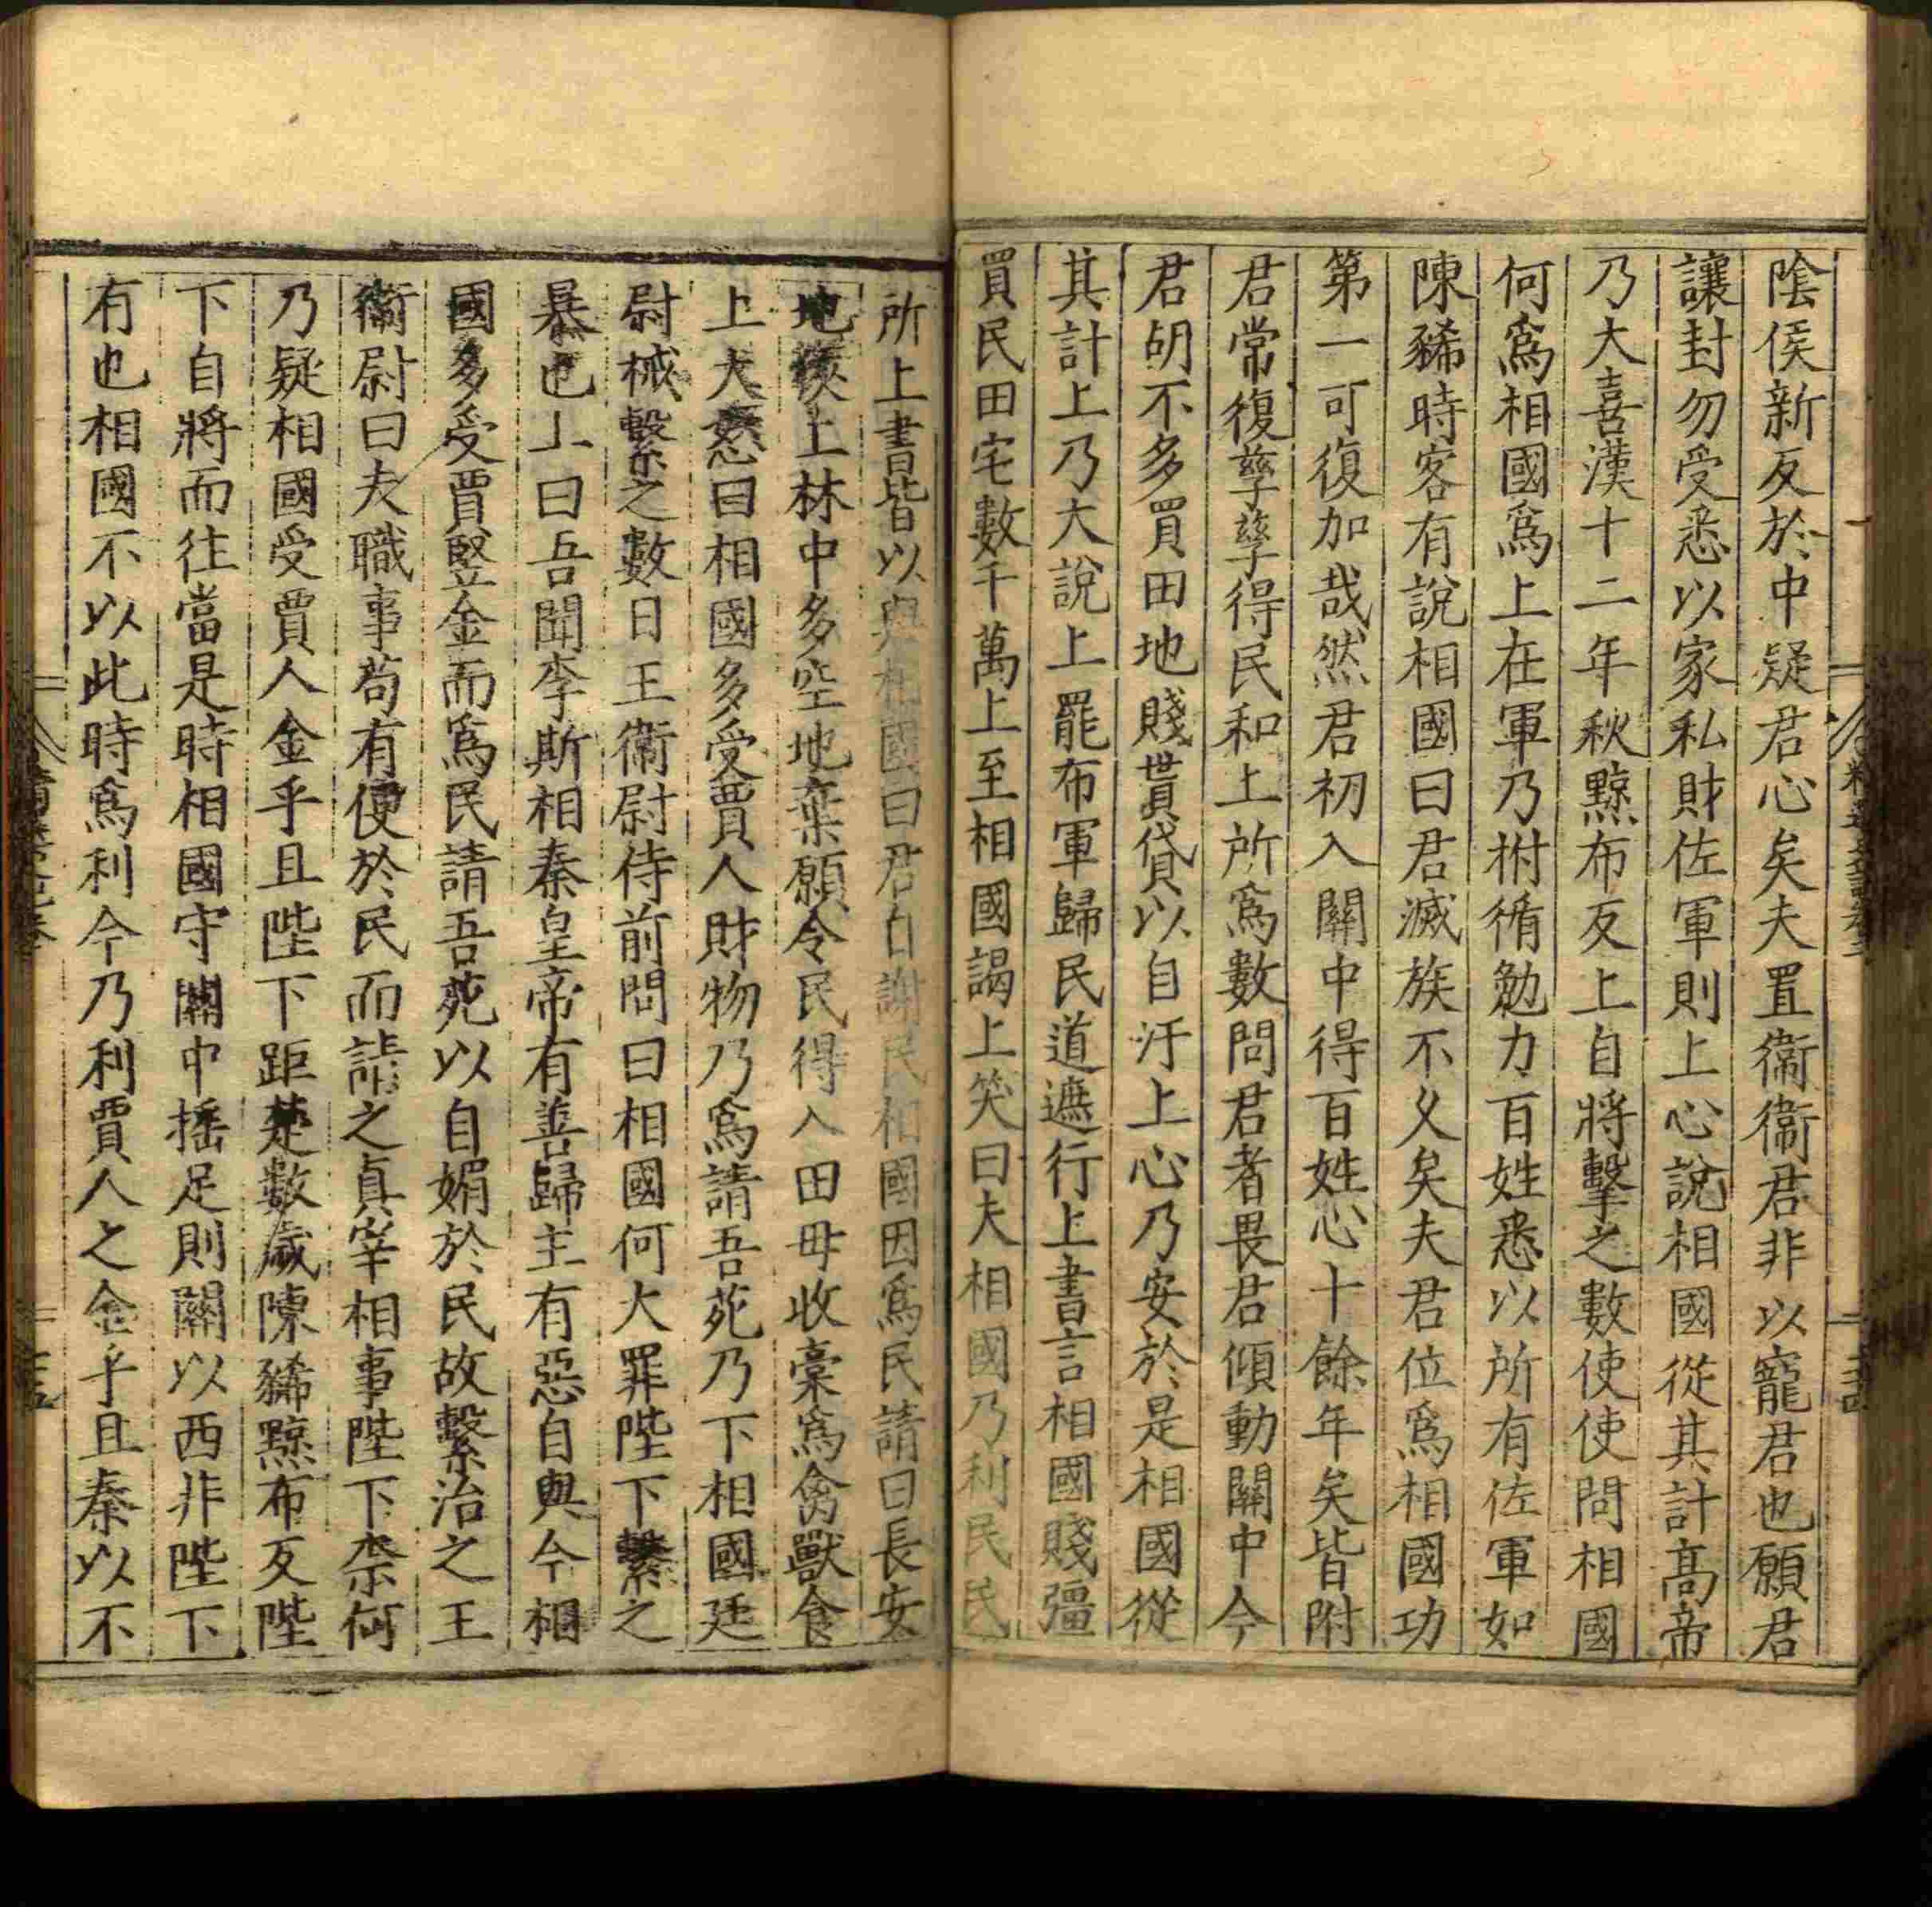 陰侯新反於中疑君心矣夫置衞衞君非以寵君也願君
讓封勿受悉以家私財佐軍則上心說相國從其計高帝
乃大喜漢十二年秋黥布反上自將擊之數使使問相國
何爲相國爲上在軍乃拊循勉力百姓悉以所有佐軍如
陳豨時客有說相國曰君滅族不久矣夫君位爲相國功
第一可復加哉然君初入關中得百姓心十餘年矣皆附
君常復孳孳得民和上所爲數問君者畏君傾動關中今
君胡不多買田地賤貰貸以自汙上心乃安於是相國從
其計上乃大說上罷布軍歸民道遮行上書言相國賤彊
買民田宅數千萬上至相國謁上笑曰夫相國乃利民民
所上書皆以與相國曰君自謝民相國因爲民請曰長安
地陿上林中多空地棄願令民得入田毋收稾爲禽獸食
上大怒曰相國多受賈人財物乃爲請吾苑乃下相國廷
尉械繫之數日王衞尉侍前問曰相國何大罪陛下繫之
暴也上曰吾聞李斯相秦皇帝有善歸主有惡自與今相
國多受賈竪金而爲民請吾苑以自媚於民故繫治之王
衞尉曰夫職事苟有便於民而請之真宰相事陛下柰何
乃疑相國受賈人金乎且陛下距楚數歲陳豨黥布反陛
下自將而往當是時相國守關中搖足則關以西非陛下
有也相國不以此時爲利今乃利賈人之金乎且秦以不